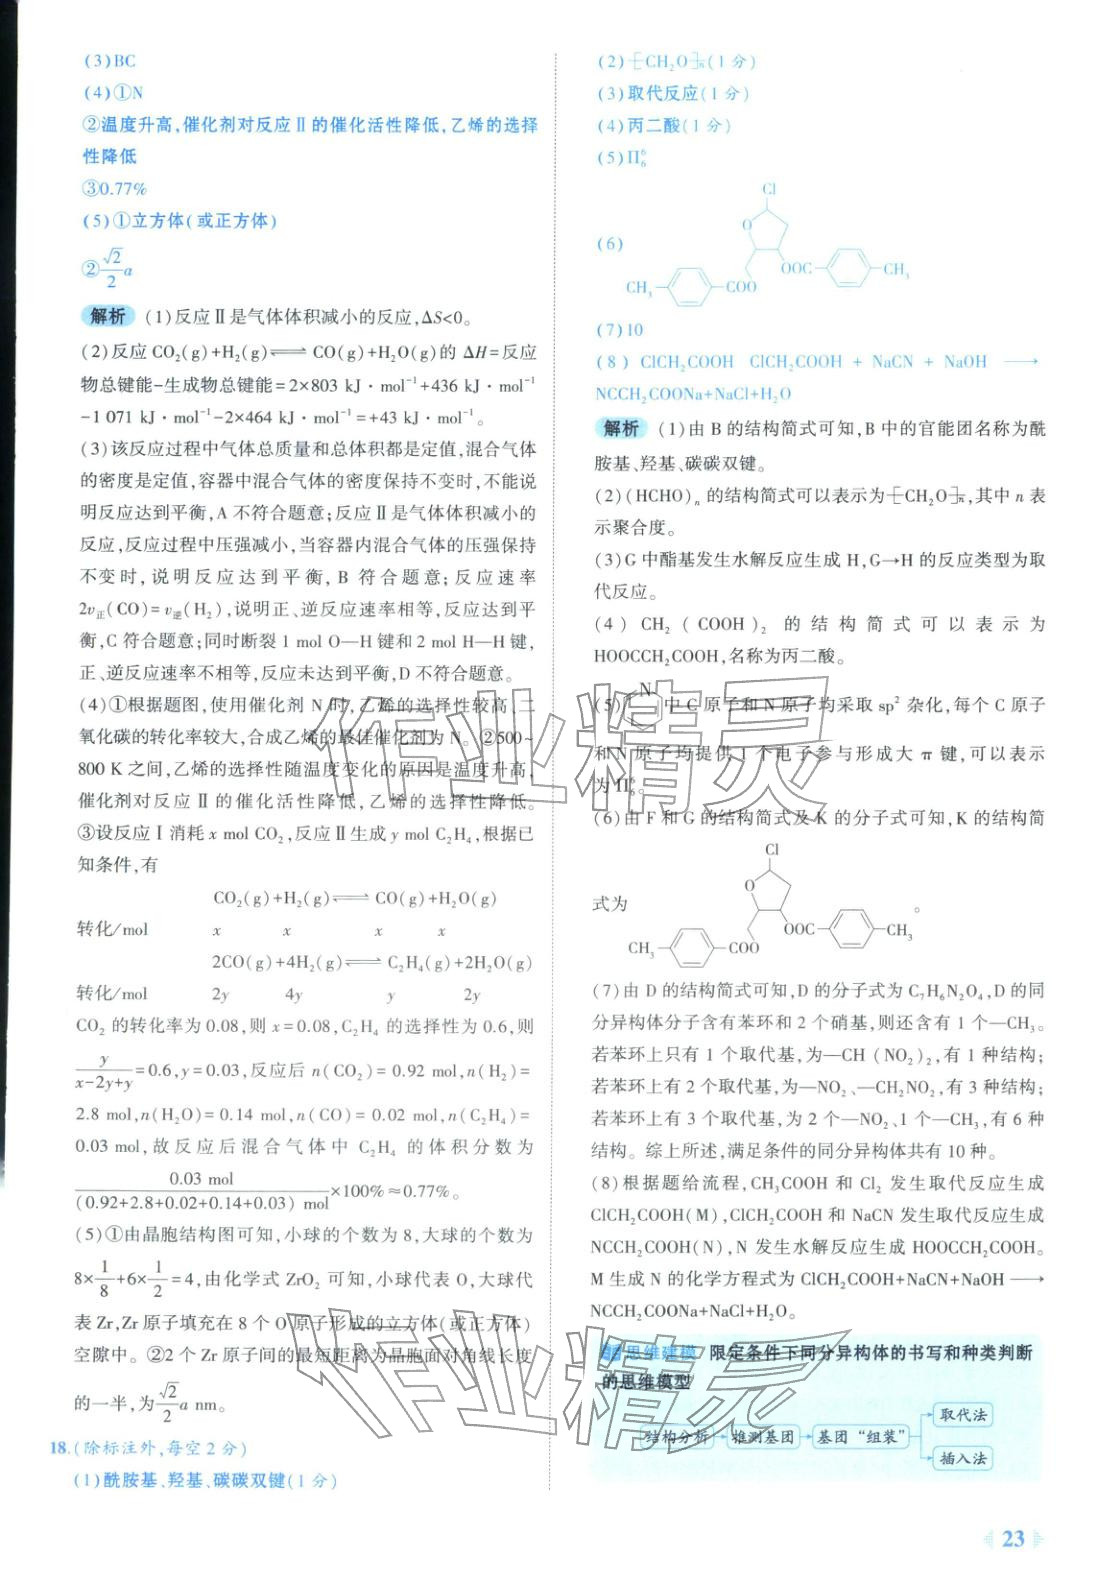 (3)BC
(4)①N
②温度升高,催化剂对反应Ⅱ的催化活性降低,乙烯的选择
性降低
③0.77%
(5)①立方体(或正方体)
②√2/2 a
解析 (1)反应Ⅱ是气体体积减小的反应,ΔS<0。
(2)反应 CO₂(g)+H₂(g)⇌CO(g)+H₂O(g)的 ΔH=反应
物总键能-生成物总键能=2×803 kJ·mol⁻¹+436 kJ·mol⁻¹
-1 071 kJ·mol⁻¹-2×464 kJ·mol⁻¹=+43 kJ·mol⁻¹。
(3)该反应过程中气体总质量和总体积都是定值,混合气体
的密度是定值,容器中混合气体的密度保持不变时,不能说
明反应达到平衡,A 不符合题意;反应Ⅱ是气体体积减小的
反应,反应过程中压强减小,当容器内混合气体的压强保持
不变时,说明反应达到平衡,B 符合题意;反应速率
2v正(CO)=v逆(H₂),说明正、逆反应速率相等,反应达到平
衡,C 符合题意;同时断裂 1 mol O—H 键和 2 mol H—H 键,
正、逆反应速率不相等,反应未达到平衡,D 不符合题意。
(4)①根据题图,使用催化剂 N 时,乙烯的选择性较高,二
氧化碳的转化率较大,合成乙烯的最佳催化剂为 N。②500~
800 K 之间,乙烯的选择性随温度变化的原因是温度升高,
催化剂对反应Ⅱ的催化活性降低,乙烯的选择性降低。
③设反应Ⅰ消耗 x mol CO₂,反应Ⅱ生成 y mol C₂H₄,根据已
知条件,有
CO₂(g)+H₂(g)⇌CO(g)+H₂O(g)
转化/mol x x x x
2CO(g)+4H₂(g)⇌C₂H₄(g)+2H₂O(g)
转化/mol 2y 4y y 2y
CO₂ 的转化率为 0.08,则 x=0.08,C₂H₄ 的选择性为 0.6,则
y/(x-2y+y)=0.6,y=0.03,反应后 n(CO₂)=0.92 mol,n(H₂)=
2.8 mol,n(H₂O)=0.14 mol,n(CO)=0.02 mol,n(C₂H₄)=
0.03 mol,故反应后混合气体中 C₂H₄ 的体积分数为
0.03 mol/(0.92+2.8+0.02+0.14+0.03) mol×100%≈0.77%。
(5)①由晶胞结构图可知,小球的个数为 8,大球的个数为
8×1/8+6×1/2=4,由化学式 ZrO₂ 可知,小球代表 O,大球代
表 Zr,Zr 原子填充在 8 个 O 原子形成的立方体(或正方体)
空隙中。②2 个 Zr 原子间的最短距离为晶胞面对角线长度
的一半,为√2/2 a nm。
18.(除标注外,每空 2 分)
(1)酰胺基、羟基、碳碳双键(1 分)
(2)⁅CH₂O⁆ₙ(1 分)
(3)取代反应(1 分)
(4)丙二酸(1 分)
(5)Π₆⁶
Cl
O
(6)
OOC CH₃
CH₃ COO
(7)10
(8) ClCH₂COOH ClCH₂COOH + NaCN + NaOH ⟶
NCCH₂COONa+NaCl+H₂O
解析 (1)由 B 的结构简式可知,B 中的官能团名称为酰
胺基、羟基、碳碳双键。
(2)(HCHO)ₙ 的结构简式可以表示为⁅CH₂O⁆ₙ,其中 n 表
示聚合度。
(3)G 中酯基发生水解反应生成 H,G→H 的反应类型为取
代反应。
(4) CH₂(COOH)₂ 的结构简式可以表示为
HOOCCH₂COOH,名称为丙二酸。
N
(5) 中 C 原子和 N 原子均采取 sp² 杂化,每个 C 原子
和 N 原子均提供 1 个电子参与形成大 π 键,可以表示
为 Π₆⁶。
(6)由 F 和 G 的结构简式及 K 的分子式可知,K 的结构简
Cl
O
式为 。
OOC CH₃
CH₃ COO
(7)由 D 的结构简式可知,D 的分子式为 C₇H₆N₂O₄,D 的同
分异构体分子含有苯环和 2 个硝基,则还含有 1 个—CH₃。
若苯环上只有 1 个取代基,为—CH(NO₂)₂,有 1 种结构;
若苯环上有 2 个取代基,为—NO₂、—CH₂NO₂,有 3 种结构;
若苯环上有 3 个取代基,为 2 个—NO₂、1 个—CH₃,有 6 种
结构。综上所述,满足条件的同分异构体共有 10 种。
(8)根据题给流程,CH₃COOH 和 Cl₂ 发生取代反应生成
ClCH₂COOH(M),ClCH₂COOH 和 NaCN 发生取代反应生成
NCCH₂COOH(N),N 发生水解反应生成 HOOCCH₂COOH。
M 生成 N 的化学方程式为 ClCH₂COOH+NaCN+NaOH⟶
NCCH₂COONa+NaCl+H₂O。
思维建模 限定条件下同分异构体的书写和种类判断
的思维模型
结构分析 → 推测基团 → 基团“组装” → 取代法
插入法
23
作业精灵
作业精灵